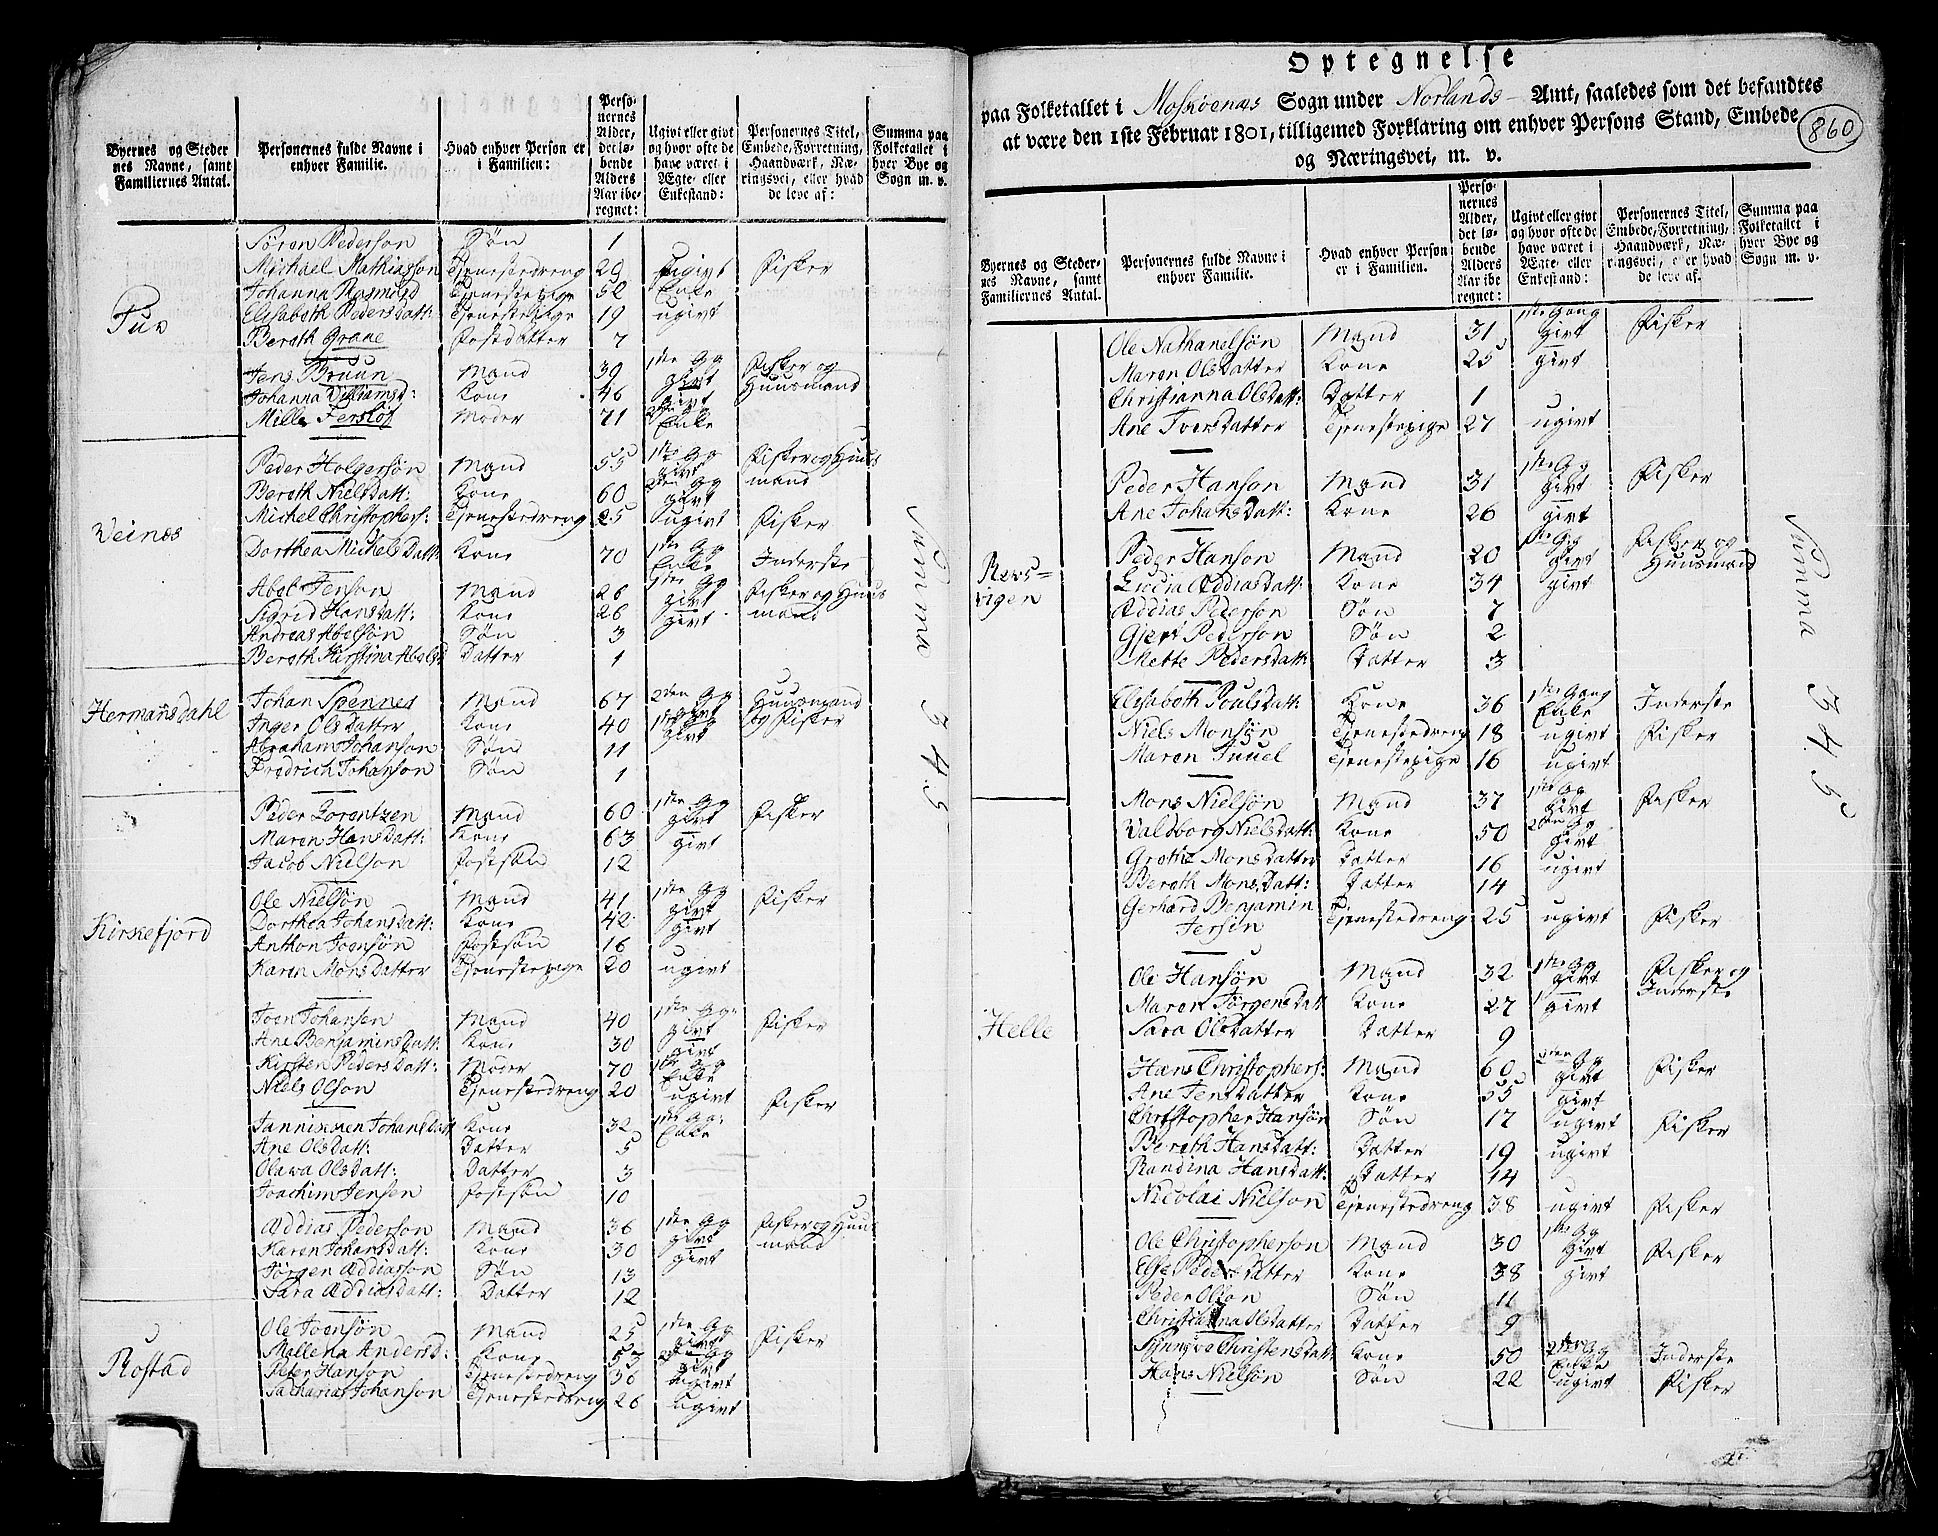 Byernes og Steder
nes Navne, samt
Familiernes Antal.
Personernes fulde Navne i
enhver Familie.
Hvad enhver Person er
i Familien:
Perso-
nernes
Alder,
det lø-
bende
Alders
Aar ibe-
regnet:
Ugivt eller givt
og hvor ofte de
have været i
Ægte- eller
Enkestand:
Personernes Titel,
Embede, Forretning,
Haandværk, Næ-
ringsvei, eller hvad
de leve af:
Summa paa
Folketallet i
hver Bye og
Sogn m. v.
Tuv
Søren Pederson Søn 1
Michael Mathiasson Tjenestedreng 29 ugivt Fisker
Johanna Rasmusd Tjenestepige 52 Enke
Elisabeth Pedersdatt: Tjenestepige 19 ugivt
Bereth Grane Fostdatter 7
Jens Bruun Mand 39 1ste Gg givt Fisker og
Johanna Williamsd: Kone 46 givt Huusmand
Mille Fersløf Moder 71 Enke
Veinæs
Peder Holgersøn Mand 55 1ste Gg givt Fisker og Huus
Bereth Nielsdatt: Kone 60 2den Gg givt mand
Michel Christophers: Tjenestedreng 25 ugivt Fisker
Dorthea Michelsdatt: Kone 70 1ste Gg Enke Inderste
Abel Jenson Mand 26 1ste Gg givt Fisker og Huus
Sigrid Hansdatt: Kone 26 givt mand
Andreas Abelsøn Søn 3
Bereth Kirstina Abelsd Datter 1
Hermansdahl
Johan Spennes Mand 67 2den Gg givt Huusmand
Inger Olsdatter Kone 40 1ste Gg givt og Fisker
Abraham Johanson Søn 11
Fredrich Johanson Søn 1
Kirkefjord
Peder Lorentzen Mand 60 1ste Gg givt Fisker
Maren Hansdatt: Kone 63 givt
Jacob Nielson Fostsøn 12
Ole Nielsøn Mand 41 1ste Gg givt Fisker
Dorthea Johansdatt: Kone 42 givt
Anthon Joensøn Fostsøn 16
Karen Monsdatter Tjenestepige 20 ugivt
Joen Johansen Mand 40 1ste Gg: givt Fisker
Ane Benjaminsdatt: Kone 30 givt
Kirsten Pedersdatt: Moder 70 1ste Gg Enke
Niels Olson Tjenestedreng 20 ugivt Fisker
Janniken Johansdatt Kone 32 1ste Gg: Enke
Ane Olsdatt: Datter 5
Olawa Olsdatt: Datter 3
Joachim Jensen Fostsøn 10
Æddias Pederson Mand 36 1ste Gg givt Fisker og Huus
Karen Johansdatt: Kone 30 givt mand
Jørgen Æddiasson Søn 13
Sara Æddiasdatt: Datter 12
Rostad
Ole Joensøn Mand 25 1ste Gg givt Fisker
Mallena Andersd: Kone 53 2den Gg givt
Peter Hanson Tjenestedreng 36 ugivt
Zacharias Johanson Tjenestedreng 26 ugivt
Summa 345
Optegnelse
paa Folketallet i Moskøenæs Sogn under Norlands- Amt, saaledes som det befandtes
at være den 1ste Februar 1801, tilligemed Forklaring om enhver Persons Stand, Embede
og Næringsvei, m. v.
860
Byernes og Steder-
nes Navne, samt
Familiernes Antal.
Personernes fulde Navne i
enhver Familie.
Hvad enhver Person
er i Familien.
Perso-
nernes
Alder,
det lø-
bende
Alders
Aar ibe
regnet:
Ugivt eller givt
og hvor ofte de
have været i
Ægte- eller
Enkestand:
Personernes Titel,
Embede, Forretning,
Haandværk, Næ-
ringsvei, eller hvad
de leve af.
Summa paa
Folketallet i
hver Bye og
Sogn m. v.
Revs=
vigen
Ole Nathanelsøn Mand 31 1ste Gang givt Fisker
Maren Olsdatter Kone 25 givt
Christianna Olsdatt: Datter 1
Ane Iversdatter Tjenestepige 27 ugivt
Peder Hanson Mand 31 1ste Gg givt Fisker
Ane Johansdatt: Kone 26 givt
Peder Hanson Mand 20 1ste Gg givt Fisker og
Lucia Æddiasdatt: Kone 34 givt Huusmand
Æddias Pederson Søn 7
Gjert Pederson Søn 2
Mette Pedersdatt: Datter 3
Elisabeth Poulsdatt: Kone 36 1ste Gang Enke Inderste
Niels Monsøn Tjenestedreng 18 ugivt Fisker
Maren Juuel Tjenestepige 16 ugivt
Helle
Mons Nielsøn Mand 37 1ste Gg givt Fisker
Valdborg Nielsdatt: Kone 50 2den Gg givt
Grethe Monsdatter Datter 16 ugivt
Bereth Monsdatt: Datter 14
Gerhard Benjamin Tjenestedreng 25 ugivt Fisker
Jersin
Ole Hansøn Mand 32 1ste Gg givt Fisker og
Maren Jørgensdatt Kone 27 givt Inderste
Sara Olsdatter Datter 9
Hans Christophers: Mand 60 2den Gg givt Fisker
Ane Jensdatter Kone 55 givt
Christopher Hansøn Søn 17 ugivt Fisker
Bereth Hansdatt: Datter 19 ugivt
Randina Hansdatt: Datter 14
Nicolai Nielson Tjenestedreng 38 ugivt Fisker
Ole Christopherson Mand 30 1ste Gg givt Fisker
Else Pedersdatter Kone 38 givt
Peder Olson Søn 11
Christianna Olsdatter Datter 9
Christensdatt Kone 50 2den Gg Enke Inderste
Hans Nielsøn Søn 22 ugivt Fisker
Summa 345